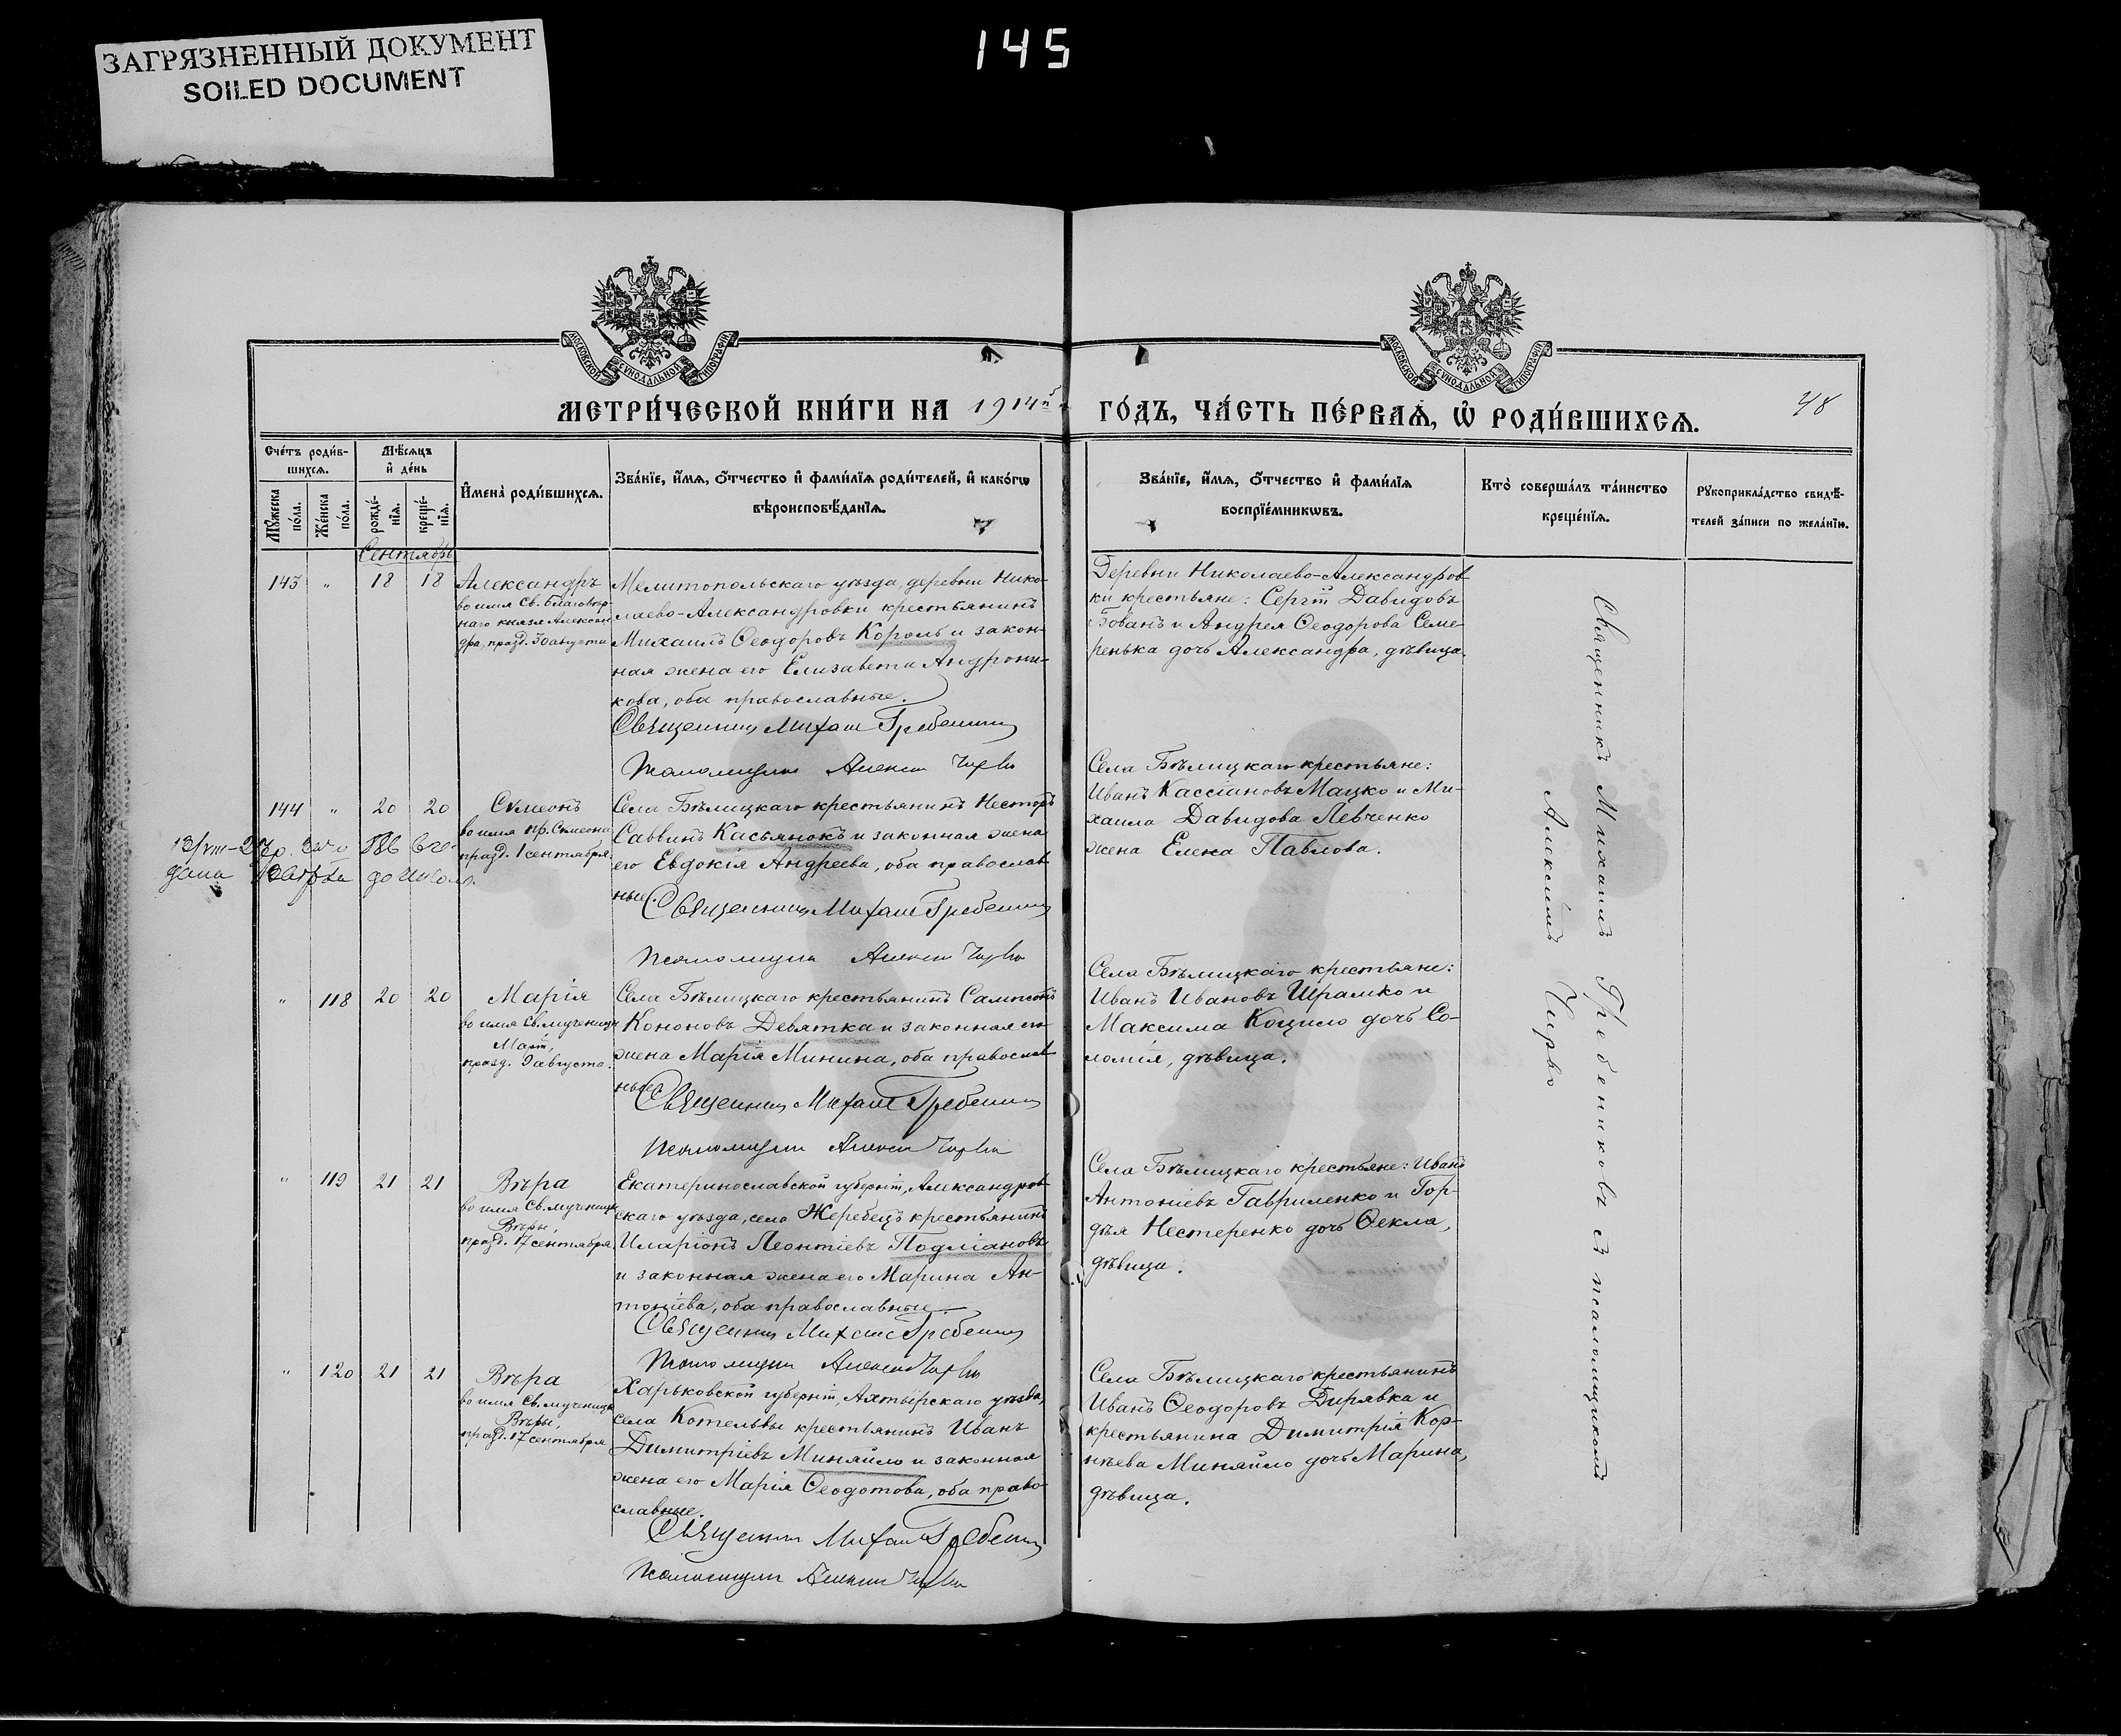 ЗАГРЯЗНЕННЫЙ ДОКУМЕНТ
SOILED DOCUMENT
145
МОСКОВСКОЙ СУНОДАЛЬНОЙ ТИПОГРАФИИ
МОСКОВСКОЙ СУНОДАЛЬНОЙ ТИПОГРАФИИ
МЕТРИ́ЧЕСКОЙ КНИ́ГИ НА 1914й ГО́ДЪ, ЧА́СТЬ ПЕ́РВАѦ, Ѡ҆ РОДИ́ВШИХСѦ. 48
Сче́тъ роди́в-
шихсѧ.
Мѣ́сѧцъ
и҆ де́нь
Мꙋ́жеска
по́ла.
Же́нска
по́ла.
рожде́-
нїѧ.
креще́-
нїѧ.
И҆мена̀ роди́вшихсѧ.
Зва́нїе, и҆́мѧ, ѻ҆́тчество и҆ фами́лїѧ роди́телей, и҆ како́гѡ
вѣроисповѣ́данїѧ.
Зва́нїе, и҆́мѧ, ѻ҆́тчество и҆ фами́лїѧ
воспрїе́мникѡвъ.
Кто̀ соверша́лъ та́инство
креще́нїѧ.
Рꙋкоприкла́дство свидѣ́-
телей за́писи по жела́нїю.
Сентябрь
143 " 18 18
Александръ
во имя Св. благовѣр-
наго князя Алексан-
дра, празд. 30 августа
Мелитопольскаго уѣзда, деревни Нико-
лаево-Александровки крестьянинъ
Михаилъ Ѳеодоровъ Король и закон-
ная жена его Елизавета Андрони-
кова, оба православные.
Священникъ Михаил Гребенник
Псаломщикъ Алексій Чирво
Деревни Николаево-Александров-
ки крестьяне: Сергій Давидовъ
Бованъ и Андрея Ѳеодорова Семе-
ренька дочь Александра, дѣвица.
144 " 20 20
Сѵмеонъ
во имя пр. Сѵмеона
празд. 1 сентября.
Села Бѣлицкаго крестьянинъ Несторъ
Саввинъ Касьянокъ и законная жена
его Евдокія Андреева, оба православ-
ные. Священникъ Михаил Гребенник
Псаломщикъ Алексій Чирво
Села Бѣлицкаго крестьяне:
Иванъ Кассіановъ Мацко и Ми-
хаила Давидова Левченко
жена Елена Павлова.
" 118 20 20
Марія
во имя Св. мученицы
Маріи,
празд. 9 августа.
Села Бѣлицкаго крестьянинъ Сампсонъ
Кононовъ Девятка и законная его
жена Марія Минина, оба православ-
ные. Священникъ Михаил Гребенник
Псаломщикъ Алексій Чирво
Села Бѣлицкаго крестьяне:
Иванъ Ивановъ Шрамко и
Максима Коцило дочь Со-
ломія, дѣвица.
" 119 21 21
Вѣра
во имя Св. мученицы
Вѣры,
празд. 17 сентября.
Екатеринославской губерніи, Александров-
скаго уѣзда, села Жеребецъ крестьянинъ
Иларіонъ Леонтіевъ Подліановъ
и законная жена его Марина Ан-
тоніева, оба православные.
Священникъ Михаил Гребенник
Псаломщикъ Алексій Чирво
Села Бѣлицкаго крестьяне: Иванъ
Антоніевъ Гавриленко и Гор-
дѣя Нестеренко дочь Ѳекла,
дѣвица.
" 120 21 21
Вѣра
во имя Св. мученицы
Вѣры,
празд. 17 сентября
Харьковской губерніи, Ахтырскаго уѣзда,
села Котельвы крестьянинъ Иванъ
Димитріевъ Миняйло и законная
жена его Марія Ѳеодотова, оба право-
славные.
Священникъ Михаил Гребенник
Псаломщикъ Алексій Чирво
Села Бѣлицкаго крестьянинъ
Иванъ Ѳеодоровъ Дирявка и
крестьянина Димитрія Кор-
нѣева Миняйло дочь Марина,
дѣвица.
Священникъ Михаилъ Гребенниковъ съ псаломщикомъ
Алексіемъ Чирво